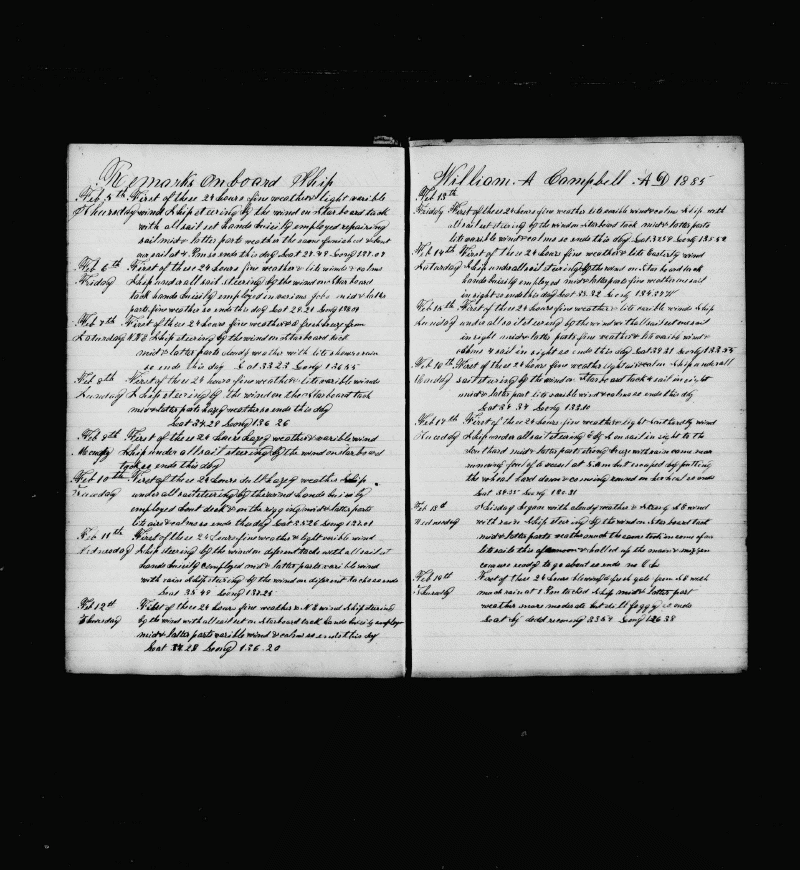 Remarks on board Ship
Feb 5th First of these 24 hours fine weather light varible
Thursday wind Ship steering by the wind on Starboard tack
with all sail set hands buisily employed repairing
sail mid & latter parts weather the same furnished
sail at 4 Pm so ends this day Lat Long
Feb 6th First of these 24 hours fine weather & lite winds & calms
Friday Ship under all sail steering by the wind on Starboard
tack hands buisily employed in various jobs mid & latter
parts fine weather so ends this day Lat Long
Feb 7th First of these 24 hours fine weather & fresh breeze from
Saturday Ship steering by the wind on Starboard tack
mid & latter parts cloudy weather with lite showers
so ends this day Lat 33.23 Long 136.55
Feb 8th First of these 24 hours fine weather lite varible winds
Sunday Ship steering by the wind on the Starboard tack
mid & latter parts hazy weather so ends this day
Lat 34.28 Long 136.26
Feb 9th First of these 24 hours hazy weather & varible wind
Monday Ship under all sail steering by the wind on starboard
tack so ends this day
Feb 10th First of these 24 hours dull hazy weather Ship
Tuesday under all sail steering by the wind hands buisily
employed bout deck & on the rigging mid & latter parts
lite airs & calms so ends this day Lat 35.26 Long 137.01
Feb 11th First of these 24 hours fine weather & light varible wind
Wednesday Ship steering by the wind on different tacks with all sail set
hands buisily employed mid & latter parts varible wind
with rain Ship steering by the wind on different tacks so ends
Lat 35.49 Long 137.25
Feb 12th First of these 24 hours fine weather & N E wind Ship steering
Thursday by the wind with all sail set on Starboard tack hands buisily employed
mid & latter parts varible wind & calms so ends this day
Lat 34.28 Long 136.20
William A Campbell AD 1885
Feb 13th
Friday First of these 24 hours fine weather lite varible wind & calms Ship with
all sail set steering by the wind on Starboard tack mid & latter parts
lite varible wind & calms so ends this day Lat Long
Feb 14th First of these 24 hours fine weather & lite Easterly wind
Saturday Ship under all sail steering by the wind on Starboard tack
hands buisily employed mid & latter parts fine weather one sail
in sight so ends this day Lat Long
Feb 15th First of these 24 hours fine weather & lite varible winds Ship
Sunday under all sail steering by the wind with all sail set one sail
in sight mid & latter parts fine weather & lite varible wind &
calms & sail in sight so ends this day Lat 34.31 Long 133.55
Feb 16th First of these 24 hours fine weather light air & calms Ship under all
Monday sail steering by the wind on Starboard tack & sail in sight
mid & latter part lite varible wind & calms so ends this day
Lat 34.34 Long
Feb 17th First of these 24 hours fine weather & light Southerly wind
Tuesday Ship under all sail steering E by S on sail in sight to the
Southard mid & latter parts strong breeze with rain came near
running foul of a vessel at 5 Am but escaped by putting
the wheel hard down & coming round on her heel so ends
Lat Long
Feb 18th This day began with cloudy weather & strong S E wind
Wednesday with rain Ship steering by the wind on Starboard tack
mid & latter parts weather much the same took in some of our
lite sails this afternoon & hauled up the main & mizzen
courses ready to go about so ends no Obs
Feb 19th First of these 24 hours blows a fresh gale from S E with
Thursday much rain at 1 Pm tacked Ship mid & latter part
weather more moderate but still foggy so ends
Lat by dedd reconing 33.54 Long 126.38